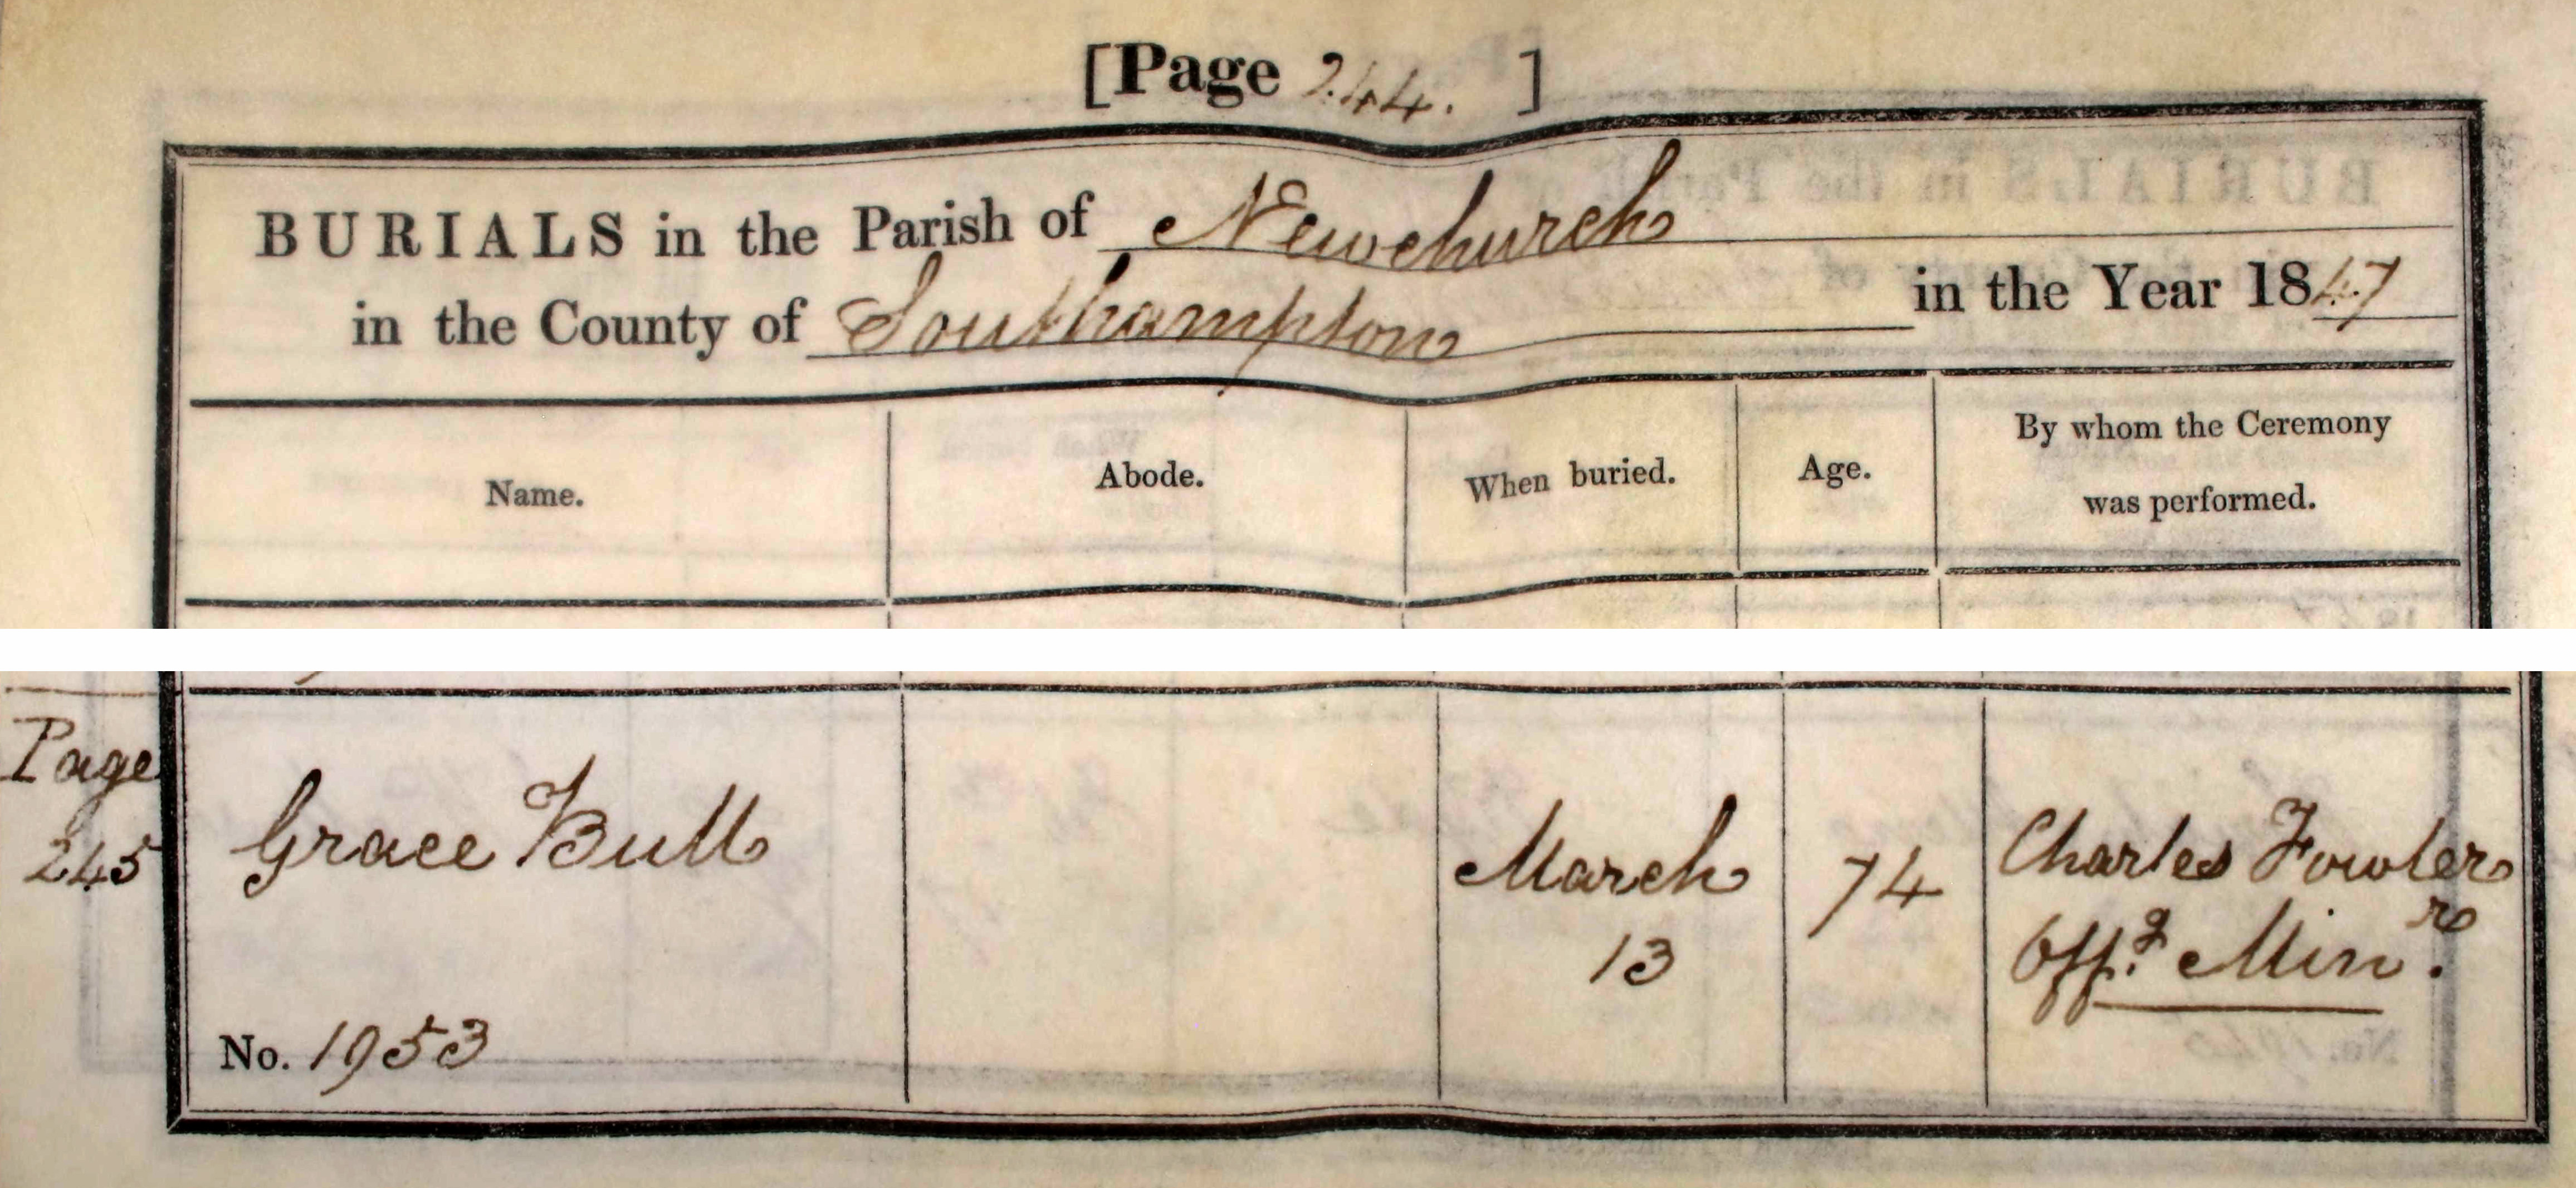 [Page 244. ]
BURIALS in the Parish of Newchurch
in the County of Southampton in the Year 1847
Name.
Abode.
When buried.
Age.
By whom the Ceremony
was performed.
Page
245
Grace Bull
March
13
74
Charles Fowler
Offg Minr.
No. 1953